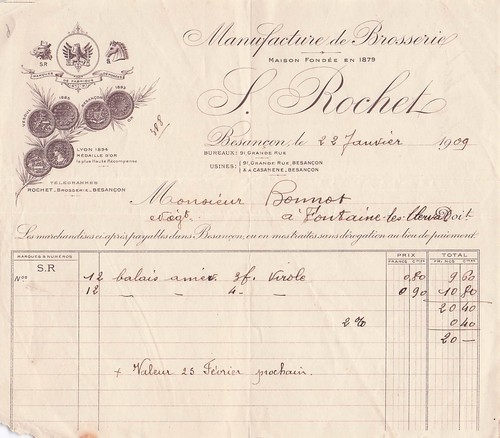 Manufacture de Brosserie
MAISON FONDÉE EN 1879
S. Rochet
S R
MARQUES DE FABRIQUE DÉPOSÉES
1885
BESANÇON
1893
LYON 1894
MÉDAILLE D'OR
la plus Haute Récompense
TÉLÉGRAMMES
ROCHET, BROSSERIE, BESANÇON
Besançon, le 22 Janvier 1909
BUREAUX: 91, GRANDE RUE
USINES: 91, GRANDE RUE, BESANÇON
à CASAMÈNE, BESANÇON
Monsieur Bonnot
à Fontaine-les-Clerval Doit
Les marchandises ci-après payables dans Besançon, ou en mes traites sans dérogation au lieu de paiement.
MARQUES & NUMÉROS PRIX TOTAL
FRANCS CMES FRANCS CMES
S.R
Nos 12 balais amér. 3f. Virole 0,80 9 60
12 — — 4 - — 0 90 10 80
20 40
2 % 0 40
20 —
+ Valeur 25 Février prochain.